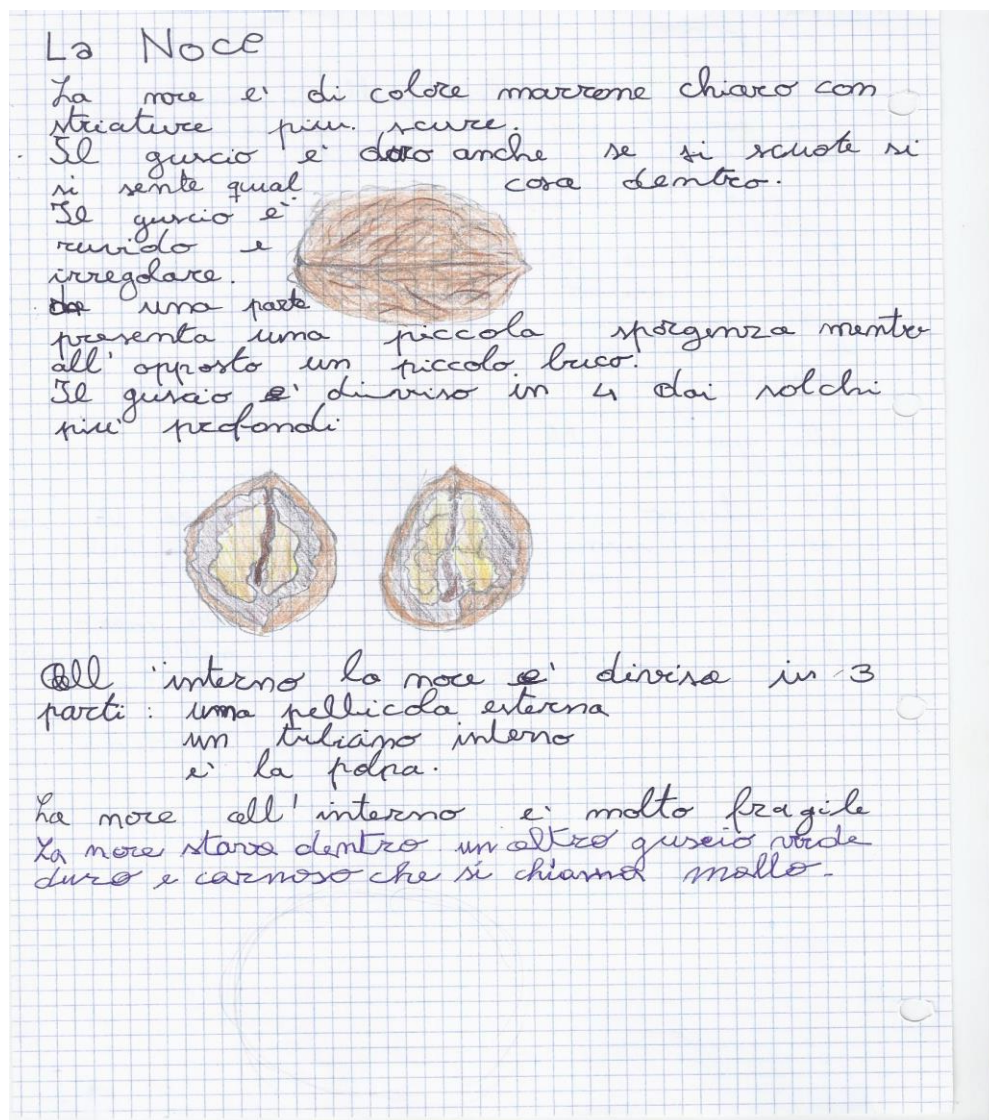 La Noce
La noce e' di colore marrone chiaro con
striature piu. scure.
Il guscio e' duro anche se si scuote si
si sente qual cosa dentro.
Il guscio e'
ruvido e
irregolare.
da una parte
presenta una piccola sporgenza mentre
all'opposto un piccolo buco.
Il guscio e' diviso in 4 dai solchi
piu' profondi
All'interno la noce e' divisa in 3
parti: una pellicola esterna
un interno
e' la polpa.
La noce all'interno e' molto fragile
La noce stava dentro un altro guscio verde
duro e carnoso che si chiama mallo.